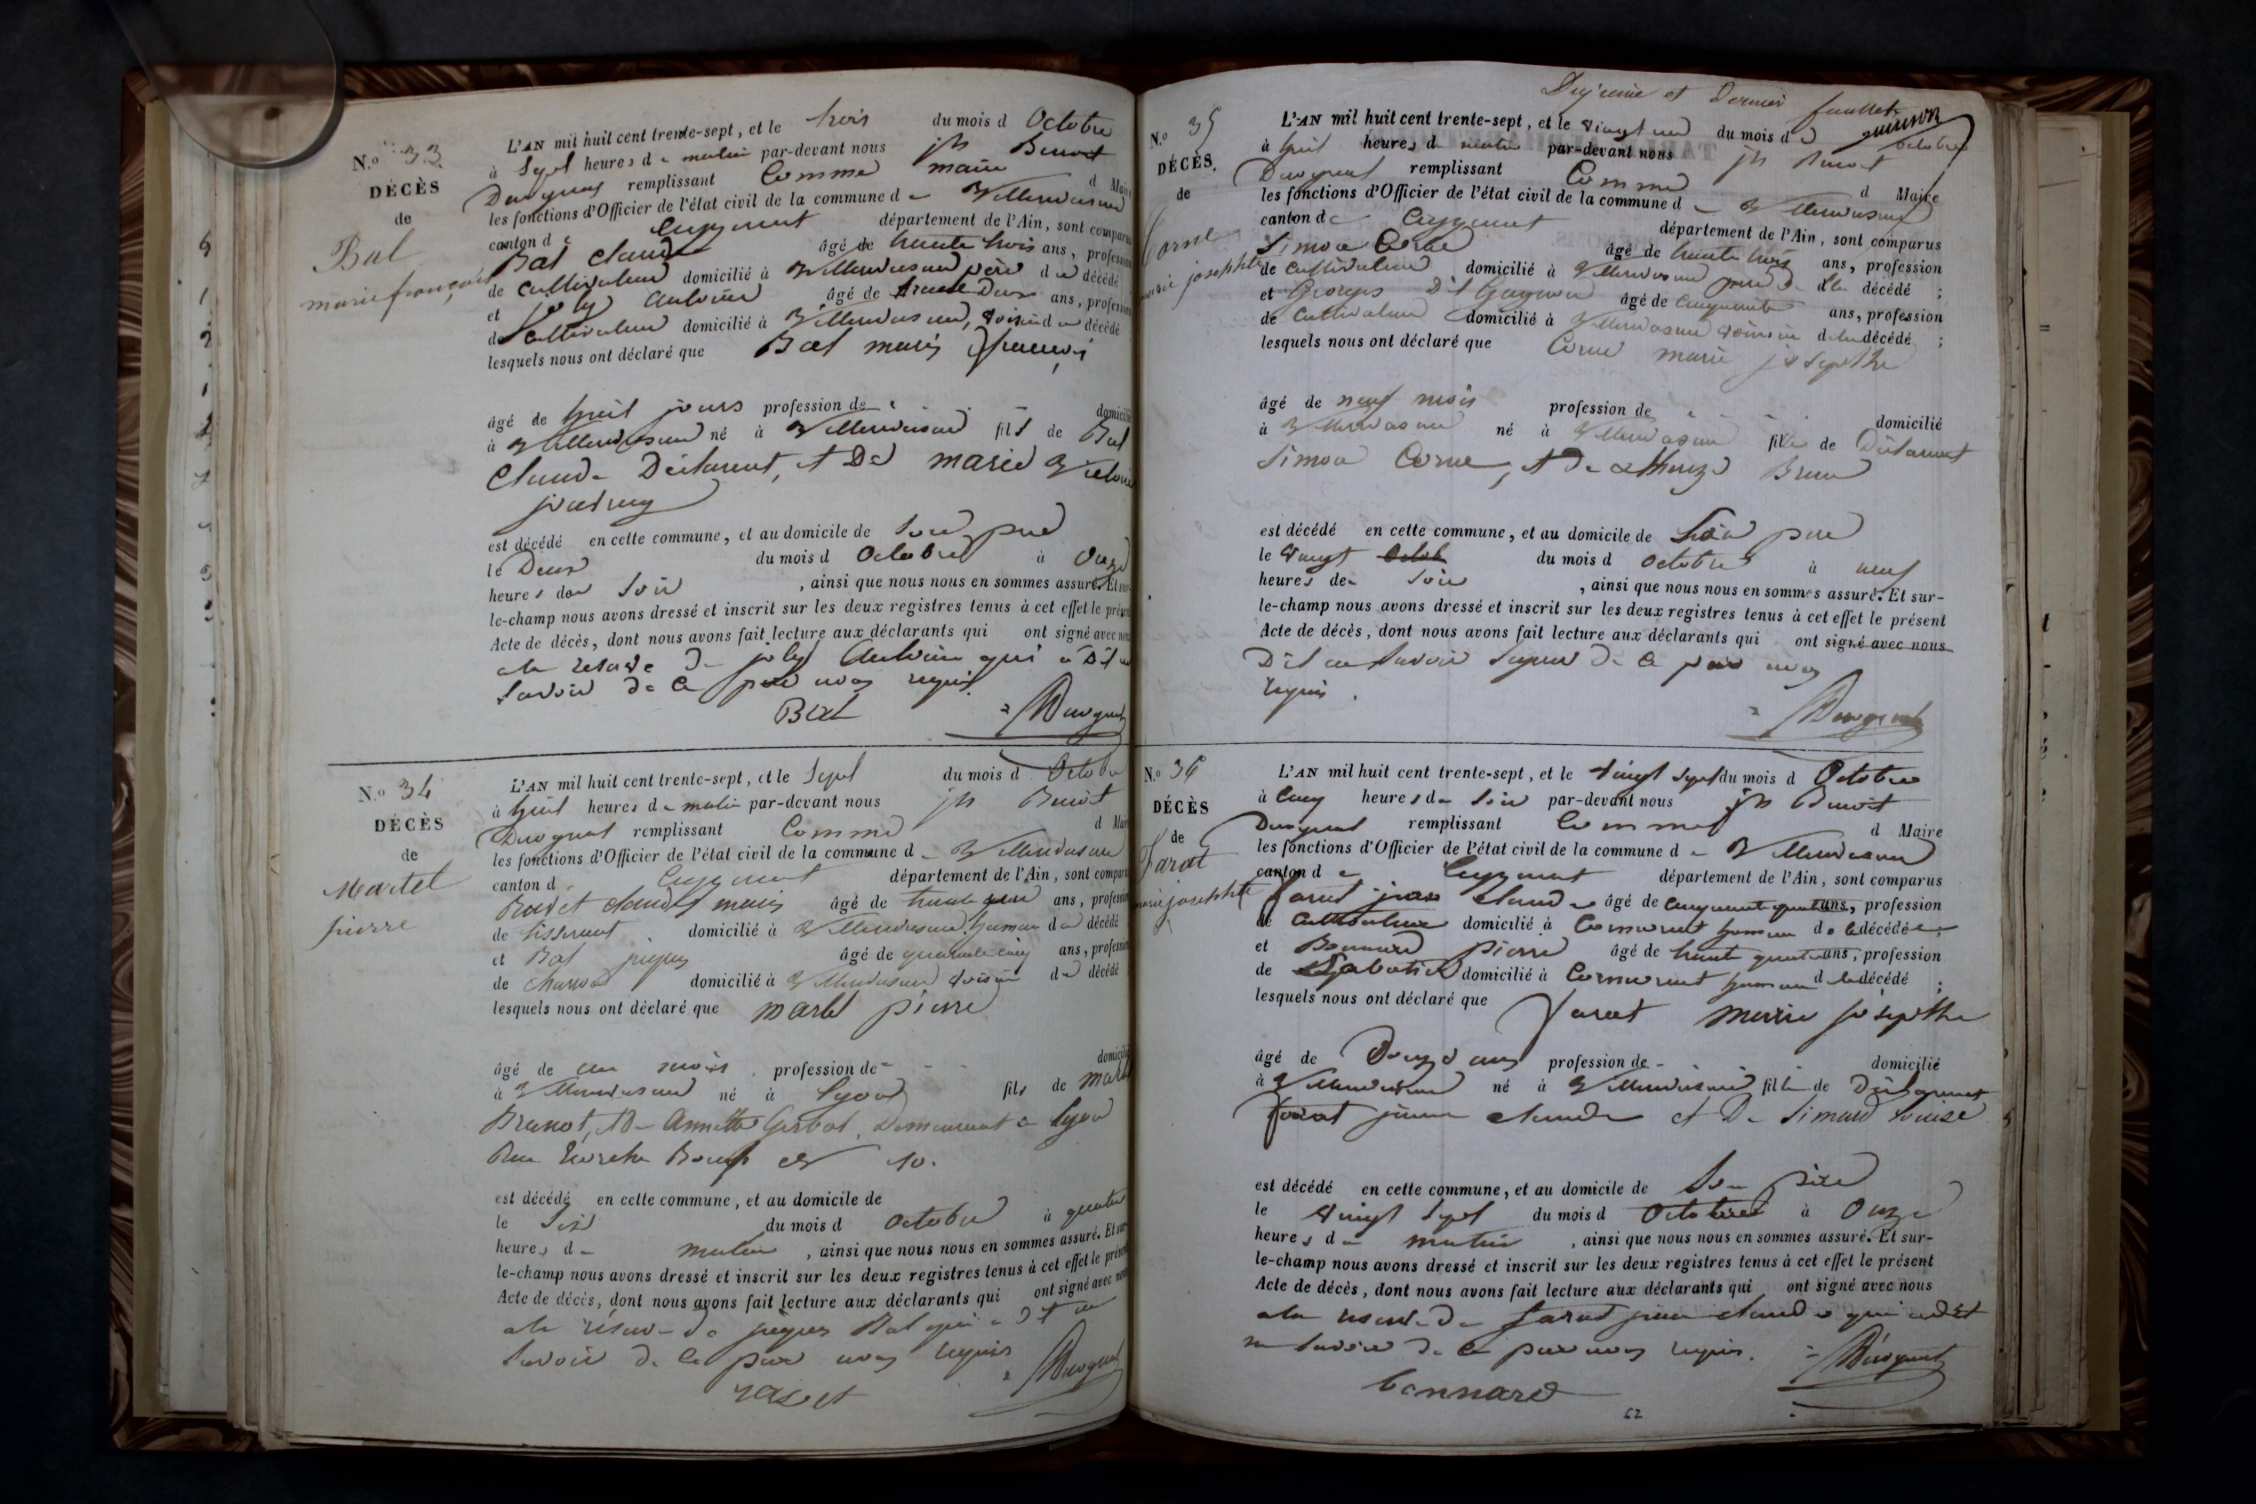 N.o 33
DÉCÈS
de
Bal
marie françois
L'AN mil huit cent trente-sept, et le trois du mois d Octobre
à Sept heures de matin par-devant nous jh Benoit
Duvogeat remplissant Comme maire d Maire
les fonctions d'Officier de l'état civil de la commune de Villereversure
canton de Ceyzeriat département de l'Ain, sont comparus
Bal Claude âgé de trente trois ans, profession
de Cultivateur domicilié à père du décédé
et joly Antoine âgé de trente Deux ans, profession
de Cultivateur domicilié à voisin du décédé
lesquels nous ont déclaré que Bal marie françois
âgé de huit jours profession de domicilié
à né à fils de Bal
Claude Déclarant, et De marie
est décédé en cette commune, et au domicile de Son père
le Deux du mois d Octobre à Onze
heures de Soir, ainsi que nous nous en sommes assuré. Et sur-
le-champ nous avons dressé et inscrit sur les deux registres tenus à cet effet le présent
Acte de décès, dont nous avons fait lecture aux déclarants qui ont signé avec nous
a la réserve de joly Antoine qui a Dit ne
Savoir de ce par nous requis
Bal
N.o 34
DÉCÈS
de
Martel
pierre
L'AN mil huit cent trente-sept, et le Sept du mois d Octobre
à huit heures de matin par-devant nous jh Benoit
remplissant Comme d Maire
les fonctions d'Officier de l'état civil de la commune de
canton d Ceyzeriat département de l'Ain, sont comparus
Claude marie âgé de trente ans, profession
de tisserant domicilié à du décédé
et Bal jaques âgé de quarante cinq ans, profession
de domicilié à voisin du décédé
lesquels nous ont déclaré que martel pierre
âgé de un mois profession de domicilié
à né à Lyon fils de
et De Annette Gerbot, Demeurant a Lyon
Rue 10.
est décédé en cette commune, et au domicile de
le Six du mois d Octobre à quatre
heures de matin, ainsi que nous nous en sommes assuré. Et sur-
le-champ nous avons dressé et inscrit sur les deux registres tenus à cet effet le présent
Acte de décès, dont nous avons fait lecture aux déclarants qui ont signé avec nous
a la réserve de jaques Bal qui a Dit ne
Savoir de ce par nous requis
Dixième et Dernier feuillet
N.o 35
DÉCÈS.
de
Corne
marie josephte
L'AN mil huit cent trente-sept, et le Vingt un du mois d octobre
à huit heures d matin par-devant nous jh Benoit
remplissant Comme d Maire
les fonctions d'Officier de l'état civil de la commune d
canton de Ceyzeriat département de l'Ain, sont comparus
Simon Corne âgé de trente trois ans, profession
de Cultivateur domicilié à père de la décédé ;
et Georges Dit âgé de Cinquante ans, profession
de Cultivateur domicilié à voisin de la décédé ;
lesquels nous ont déclaré que Corne marie josepthe
âgé de neuf mois profession de domicilié
à né à fille de Déclarant
Simon Corne, et De
est décédé en cette commune, et au domicile de Son père
le Vingt Octob du mois d octobre à neuf
heures de Soir, ainsi que nous nous en sommes assuré. Et sur-
le-champ nous avons dressé et inscrit sur les deux registres tenus à cet effet le présent
Acte de décès, dont nous avons fait lecture aux déclarants qui ont signé avec nous
Dit ne Savoir Signer De ce par nous
requis.
N.o 36
DÉCÈS
de
Farat
marie josephte
L'AN mil huit cent trente-sept, et le Vingt Sept du mois d Octobre
à Cinq heures de Soir par-devant nous jh Benoit
remplissant Comme d Maire
les fonctions d'Officier de l'état civil de la commune de
canton de Ceyzeriat département de l'Ain, sont comparus
farat jean Claude âgé de Cinquante quatre ans, profession
de Cultivateur domicilié à de la décédé
et Bonnard Pierre âgé de trente quatre ans, profession
de Sabotier domicilié à de la décédé ;
lesquels nous ont déclaré que Farat Marie josepthe
âgé de Douze ans profession de domicilié
à né à fille de Déclarant
farat jean Claude et De Simard Louise
est décédé en cette commune, et au domicile de Son père
le Vingt Sept du mois d Octobre à Onze
heures de matin, ainsi que nous nous en sommes assuré. Et sur-
le-champ nous avons dressé et inscrit sur les deux registres tenus à cet effet le présent
Acte de décès, dont nous avons fait lecture aux déclarants qui ont signé avec nous
a la réserve De farat jean Claude qui a dit
ne Savoir De ce par nous requis.
bonnard
62